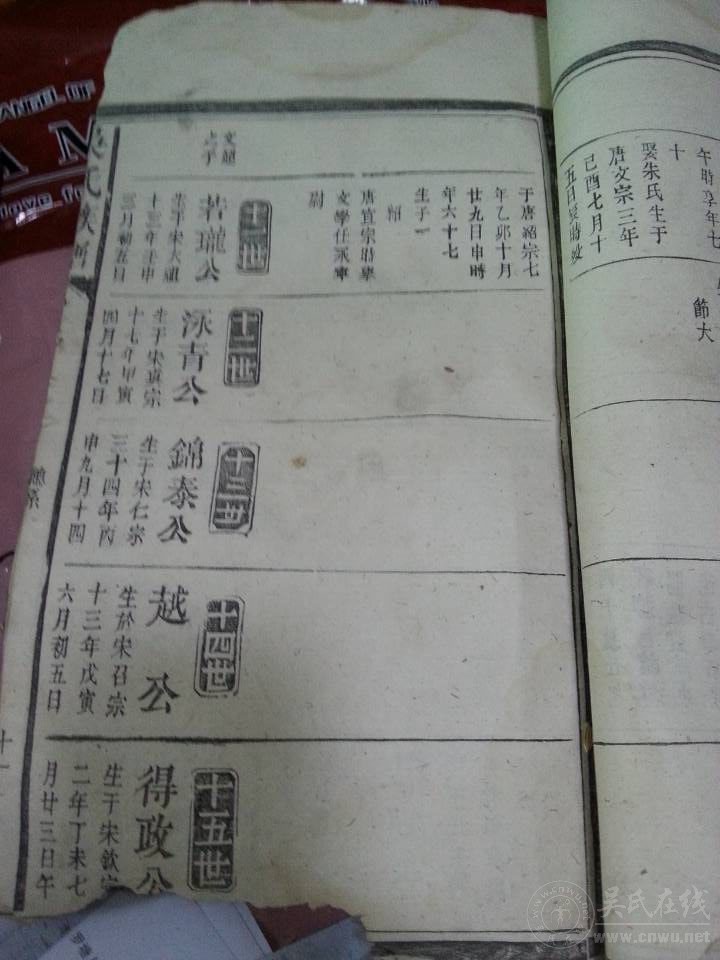 午時享年七
十
娶朱氏生于
唐文宗三年
己酉七月十
五日
節大
于唐昭宗七
年乙卯十月
廿九日申時
年六十七
生子一
紹
唐宣宗時舉
文學任永寧
尉
十一世
若瓏公
生于宋太祖
十三年壬申
三月初五日
文韶
之子
十二世
泳青公
生于宋真宗
十七年甲寅
四月十七日
十三世
錦泰公
生于宋仁宗
三十四年丙
申九月十四
十四世
越公
生於宋召宗
十三年戊寅
六月初五日
十五世
得政公
生于宋欽宗
二年丁未七
月廿三日午
吳氏族譜
十一
ANGEL OF
吴氏在线
www.cnwu.net